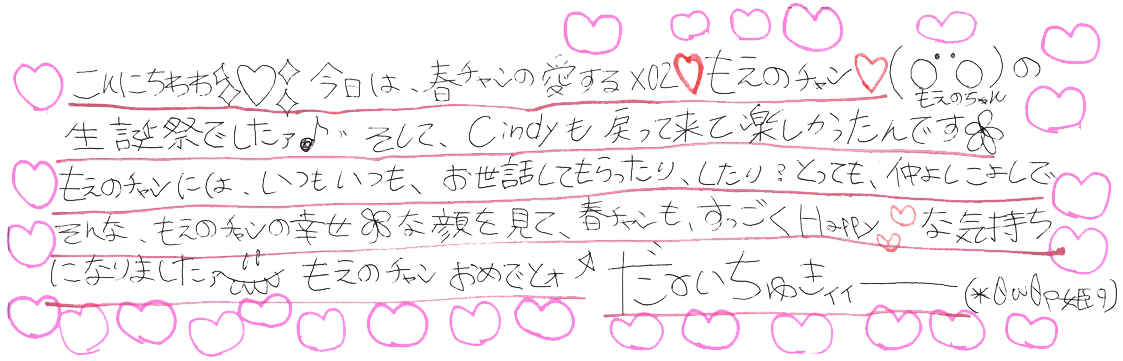 こんにちわわ♡今日は、春チャンの愛するxO2♡もえのチャン♡(もえのちゃん)の
生誕祭でしたァ♪゛そして、Cindyも戻って来て楽しかったんです
もえのチャンには、いつもいつも、お世話してもらったり、したり?とっても、仲よしこよしで
そんな、もえのチャンの幸せな顔を見て、春チャンも、すっごくHappy♡な気持ち
になりましたァ もえのチャンおめでとォ だぁいちゅきィィ――(*θωθp姫q)